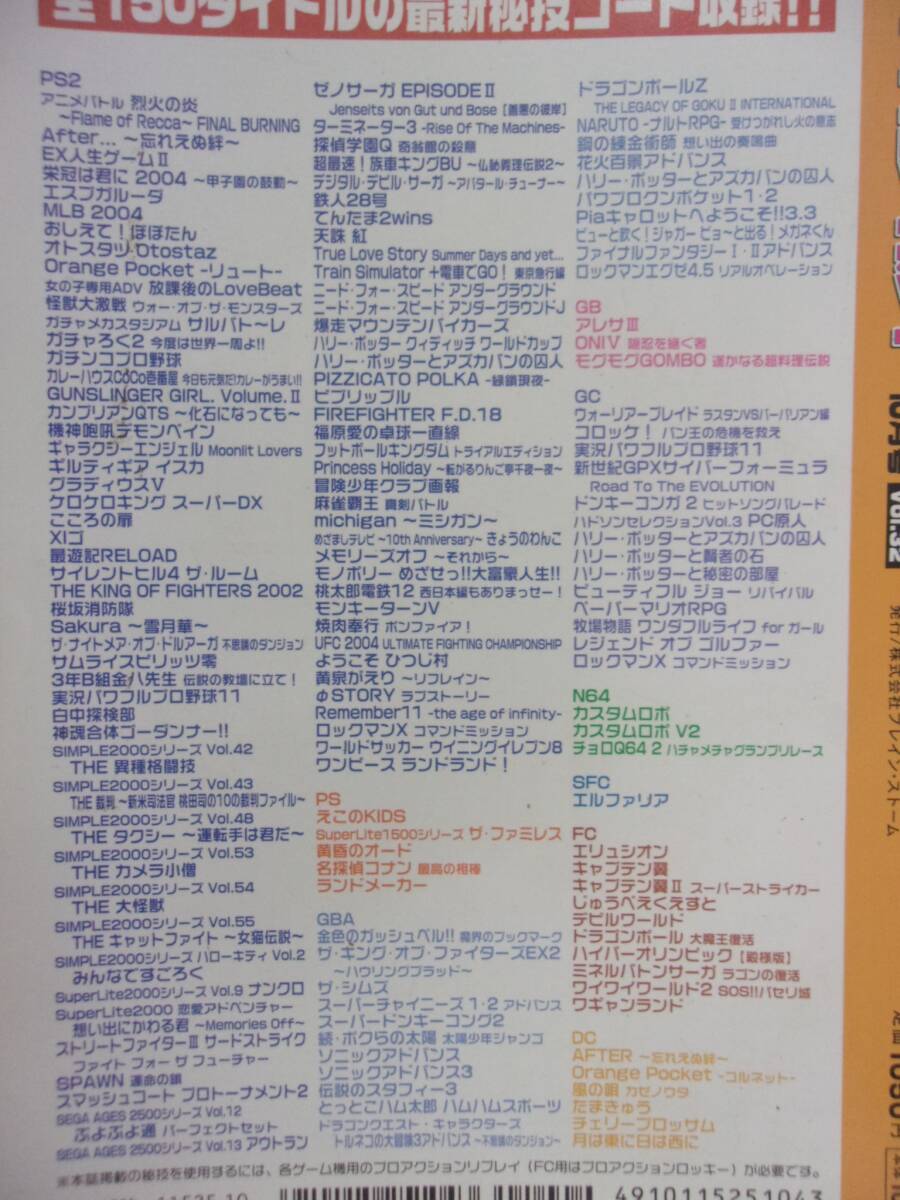 全150タイトルの最新秘技コード収録!!
PS2
アニメバトル 烈火の炎
~Flame of Recca~ FINAL BURNING
After... ~忘れえぬ絆~
EX人生ゲームⅡ
栄冠は君に 2004 ~甲子園の鼓動~
エスプガルーダ
MLB 2004
おしえて！ぽぽたん
オトスタツ Otostaz
Orange Pocket -リュート-
女の子専用ADV 放課後のLoveBeat
怪獣大激戦 ウォー・オブ・ザ・モンスターズ
ガチャメカスタジアム サルバト~レ
ガチャろく2 今度は世界一周よ!!
ガチンコプロ野球
カレーハウスCoCo壱番屋 今日も元気だ!カレーがうまい!!
GUNSLINGER GIRL. Volume.Ⅱ
カンブリアンQTS ~化石になっても~
機神咆吼デモンベイン
ギャラクシーエンジェル Moonlit Lovers
ギルティギア イスカ
グラディウスⅤ
ケロケロキング スーパーDX
こころの扉
XIゴ
最遊記RELOAD
サイレントヒル4 ザ・ルーム
THE KING OF FIGHTERS 2002
桜坂消防隊
Sakura ~雪月華~
ザ・ナイトメア・オブ・ドルアーガ 不思議のダンジョン
サムライスピリッツ零
3年B組金八先生 伝説の教壇に立て！
実況パワフルプロ野球11
白中探検部
神魂合体ゴーダンナー!!
SIMPLE2000シリーズ Vol.42
THE 異種格闘技
SIMPLE2000シリーズ Vol.43
THE 裁判 ~新米司法官 桃田司の10の裁判ファイル~
SIMPLE2000シリーズ Vol.48
THE タクシー ~運転手は君だ~
SIMPLE2000シリーズ Vol.53
THE カメラ小僧
SIMPLE2000シリーズ Vol.54
THE 大怪獣
SIMPLE2000シリーズ Vol.55
THE キャットファイト ~女猫伝説~
SIMPLE2000シリーズ ハローキティ Vol.2
みんなですごろく
SuperLite2000シリーズ Vol.9 ナンクロ
SuperLite2000 恋愛アドベンチャー
想い出にかわる君 ~Memories Off~
ストリートファイターⅢ サードストライク
ファイト フォー ザ フューチャー
SPAWN 運命の鎖
スマッシュコート プロトーナメント2
SEGA AGES 2500シリーズ Vol.12
ぷよぷよ通 パーフェクトセット
SEGA AGES 2500シリーズ Vol.13 アウトラン
ゼノサーガ EPISODEⅡ
Jenseits von Gut und Bose [善悪の彼岸]
ターミネーター3 -Rise Of The Machines-
探偵学園Q 奇翁館の殺意
超最速！族車キングBU ~仏恥義理伝説2~
デジタル・デビル・サーガ ~アバタール・チューナー~
鉄人28号
てんたま2wins
天誅 紅
True Love Story Summer Days and yet...
Train Simulator +電車でGO！ 東京急行編
ニード・フォー・スピード アンダーグラウンド
ニード・フォー・スピード アンダーグラウンドJ
爆走マウンテンバイカーズ
ハリー・ポッター クィディッチ ワールドカップ
ハリー・ポッターとアズカバンの囚人
PIZZICATO POLKA -縁鎖現夜-
ビブリップル
FIREFIGHTER F.D.18
福原愛の卓球一直線
フットボールキングダム トライアルエディション
Princess Holiday ~転がるりんご亭千夜一夜~
冒険少年クラブ画報
麻雀覇王 真剣バトル
michigan ~ミシガン~
めざましテレビ ~10th Anniversary~ きょうのわんこ
メモリーズオフ ~それから~
モノポリー めざせっ!!大富豪人生!!
桃太郎電鉄12 西日本編もありまっせー！
モンキーターンV
焼肉奉行 ボンファイア！
UFC 2004 ULTIMATE FIGHTING CHAMPIONSHIP
ようこそ ひつじ村
黄泉がえり ~リフレイン~
φSTORY ラブストーリー
Remember11 -the age of infinity-
ロックマンX コマンドミッション
ワールドサッカー ウイニングイレブン8
ワンピース ランドランド！
PS
えこのKIDS
SuperLite1500シリーズ ザ・ファミレス
黄昏のオード
名探偵コナン 最高の相棒
ランドメーカー
GBA
金色のガッシュベル!! 魔界のブックマーク
ザ・キング・オブ・ファイターズEX2
~ハウリングブラッド~
ザ・シムズ
スーパーチャイニーズ 1・2 アドバンス
スーパードンキーコング2
続・ボクらの太陽 太陽少年ジャンゴ
ソニックアドバンス
ソニックアドバンス3
伝説のスタフィー3
とっとこハム太郎 ハムハムスポーツ
ドラゴンクエスト・キャラクターズ
トルネコの大冒険3アドバンス ~不思議のダンジョン~
ドラゴンボールZ
THE LEGACY OF GOKU Ⅱ INTERNATIONAL
NARUTO -ナルトRPG- 受けつがれし火の意志
鋼の錬金術師 想い出の奏鳴曲
花火百景アドバンス
ハリー・ポッターとアズカバンの囚人
パワプロクンポケット1・2
Piaキャロットへようこそ!!3.3
ピューと吹く！ジャガー ビョ~と出る！メガネくん
ファイナルファンタジーⅠ・Ⅱアドバンス
ロックマンエグゼ4.5 リアルオペレーション
GB
アレサⅢ
ONIV 隠忍を継ぐ者
モグモグGOMBO 遥かなる超料理伝説
GC
ウォーリアーブレイド ラスタンVSバーバリアン編
コロッケ！ バン王の危機を救え
実況パワフルプロ野球11
新世紀GPXサイバーフォーミュラ
Road To The EVOLUTION
ドンキーコンガ 2 ヒットソングパレード
ハドソンセレクションVol.3 PC原人
ハリー・ポッターとアズカバンの囚人
ハリー・ポッターと賢者の石
ハリー・ポッターと秘密の部屋
ビューティフル ジョー リバイバル
ペーパーマリオRPG
牧場物語 ワンダフルライフ for ガール
レジェンド オブ ゴルファー
ロックマンX コマンドミッション
N64
カスタムロボ
カスタムロボ V2
チョロQ64 2 ハチャメチャグランプリレース
SFC
エルファリア
FC
エリュシオン
キャプテン翼
キャプテン翼Ⅱ スーパーストライカー
じゅうべえくえすと
デビルワールド
ドラゴンボール 大魔王復活
ハイパーオリンピック [殿様版]
ミネルバトンサーガ ラゴンの復活
ワイワイワールド2 SOS!!パセリ城
ワギャンランド
DC
AFTER ~忘れえぬ絆~
Orange Pocket -コルネット-
風の唄 カゼノウタ
たまきゅう
チェリーブロッサム
月は東に日は西に
※本誌掲載の秘技を使用するには、各ゲーム機用のプロアクションリプレイ (FC用はプロアクションロッキー) が必要です。
4910115251043
10月号 Vol.32
発行/株式会社ブレイン・ストーム
定価1050円